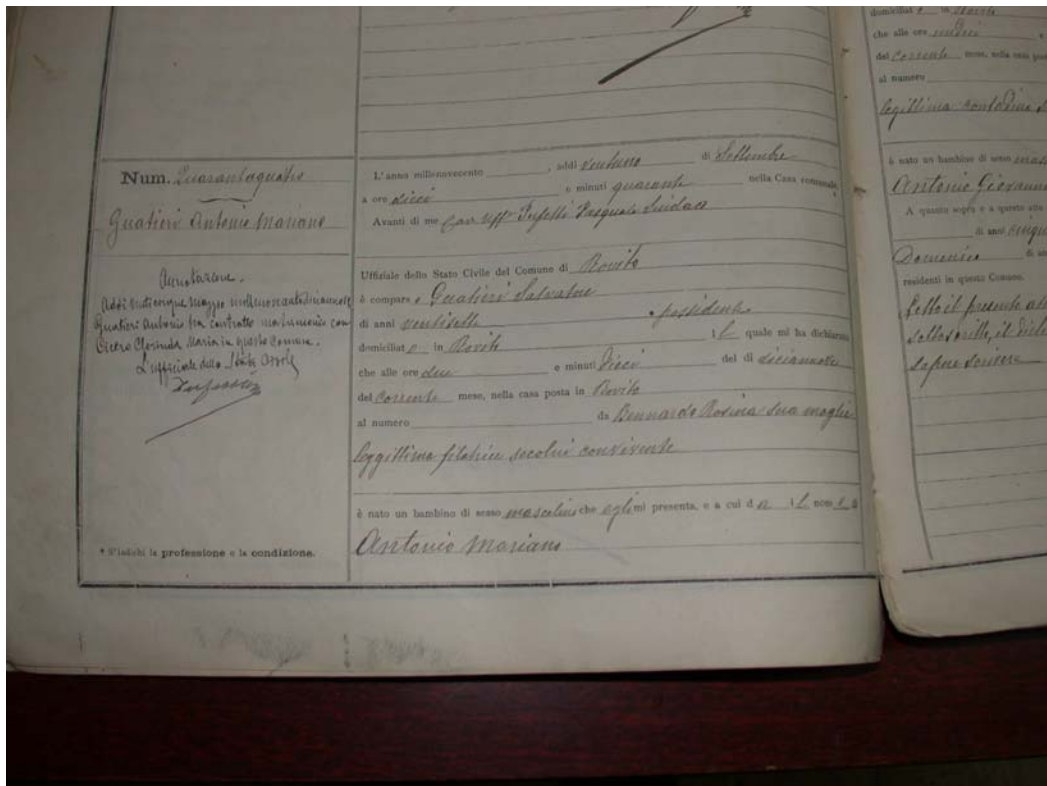 Num. Quarantaquattro
Gualtieri Antonio Mariano
Annotazione.
Addì venticinque maggio millenovecentodiciannove
Gualtieri Antonio ha contratto matrimonio con
Cicero Clorinda Maria in questo Comune.
L'ufficiale dello Stato Civile
* S'indichi la professione e la condizione.
L'anno millenovecento , addì ventuno di Settembre
a ore dieci e minuti quaranta nella Casa comunale.
Avanti di me Cav. Uff. Pasquale Sindaco
Uffiziale dello Stato Civile del Comune di Rovito
è comparso Gualtieri Salvatore
di anni ventisette * possidente
domiciliato in Rovito il quale mi ha dichiarato
che alle ore due e minuti dieci del dì diciannove
del corrente mese, nella casa posta in Rovito
al numero da Bennardo Rosina sua moglie
leggittima filatrice secolui convivente
è nato un bambino di sesso mascolino che egli mi presenta, e a cui dà il nome di
Antonio Mariano
domiciliato in Rovito
che alle ore undici e
del corrente mese, nella casa
al numero
legittima contadina
è nato un bambino di sesso
Antonio Giovanni
A quanto sopra e a questo atto
di anni
Domenico di
residenti in questo Comune.
Letto il presente
sottoscritto, il
sapere scrivere